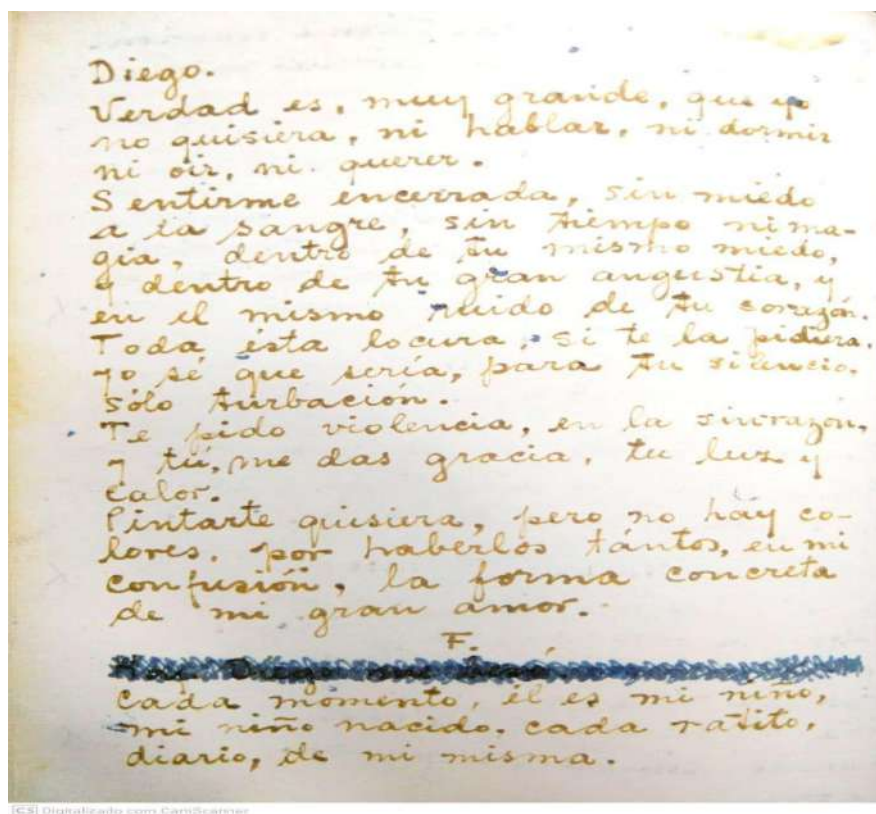 Diego.
Verdad es, muy grande, que yo
no quisiera, ni hablar, ni dormir
ni oir, ni querer.
Sentirme encerrada, sin miedo
a la sangre, sin tiempo ni ma-
gia, dentro de tu mismo miedo,
y dentro de tu gran angustia, y
en el mismo ruido de tu corazón.
Toda ésta locura, si te la pidiera,
yo sé que sería, para tu silencio,
sólo turbación.
Te pido violencia, en la sinrazon,
y tú, me das gracia, tu luz y
calor.
Pintarte quisiera, pero no hay co-
lores, por haberlos tántos, en mi
confusión, la forma concreta
de mi gran amor.
F.
Hoy Diego me besó
Cada momento, él es mi niño,
mi niño nacido, cada ratito,
diario, de mi misma.
CS Digitalizado com CamScanner